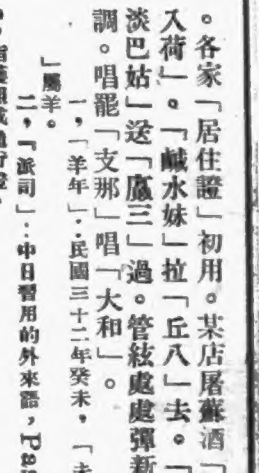 。各家「居住證」初用。某店屠蘇酒「
入荷」。「鹹水妹」拉「丘八」去。「
淡巴姑」送「廠三」過。管絃處處彈新
調。唱罷「支那」唱「大和」。
一，「羊年」：民國三十二年癸未，「未
」屬羊。
二，「派司」：中日習用的外來語，Pas